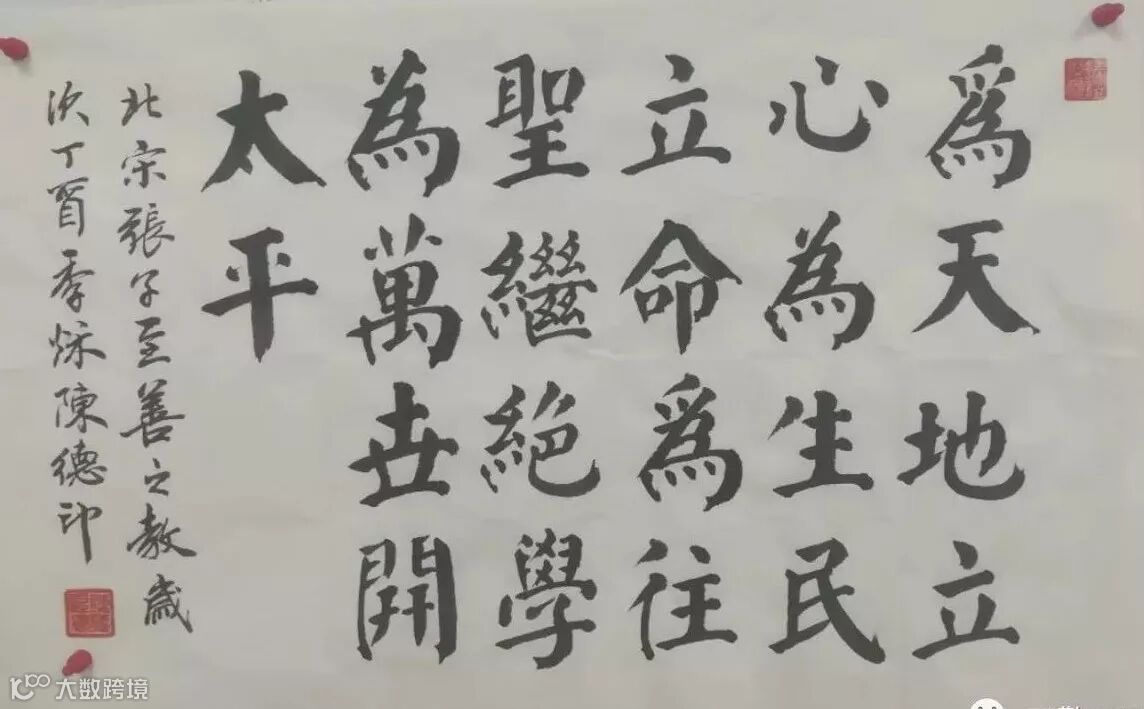 爲天地立
心為生民
立命爲往
聖繼絕學
為萬世開
太平
北宗張子至善之教歲
次丁酉季烁陳德印
大数跨境